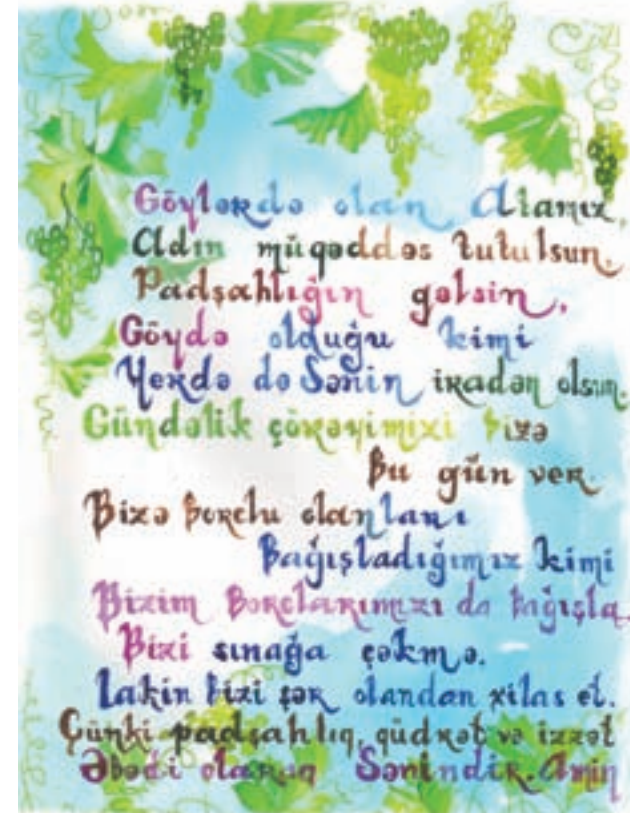 Göylərdə olan Atamız,
Adın müqəddəs tutulsun.
Padşahlığın gəlsin,
Göydə olduğu kimi
Yerdə də Sənin iradən olsun.
Gündəlik çörəyimizi bizə
Bu gün ver.
Bizə borclu olanları
Bağışladığımız kimi
Bizim borclarımızı da bağışla.
Bizi sınağa çəkmə.
Lakin bizi şər olandan xilas et.
Çünki padşahlıq, qüdrət və izzət
Əbədi olaraq Sənindir. Amin